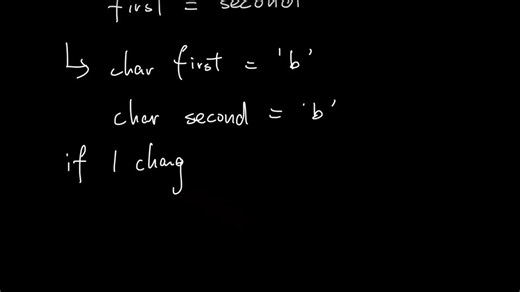 first = second
↳ char first = 'b'
char second = 'b'
if I chang